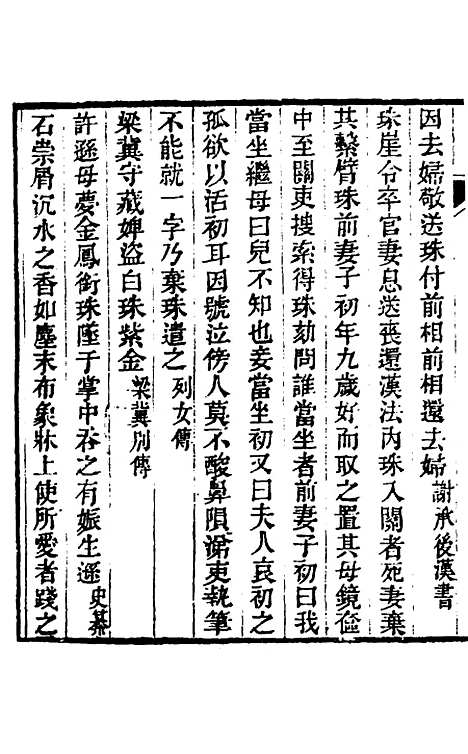 因去婦敬送珠付前相前相還去婦謝承後漢書
珠崖令卒官妻息送喪還漢法內珠入關者死妻棄
其繫臂珠前妻子初年九歲好而取之置其母鏡奩
中至關吏搜索得珠劾問誰當坐者前妻子初曰我
當坐繼母曰兒不知也妾當坐初又曰夫人哀初之
孤欲以活初耳因號泣傍人莫不酸鼻隕涕吏執筆
不能就一字乃棄珠遣之列女傳
梁冀守藏婢盜白珠紫金梁冀別傳
許遜母夢金鳳銜珠墜于掌中吞之有娠生遜史纂
石崇屑沉水之香如塵末布象牀上使所愛者踐之